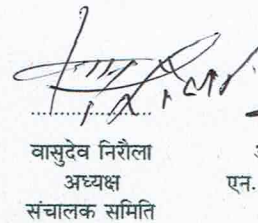 वासुदेव निरौला
अध्यक्ष
एन.
संचालक समिति